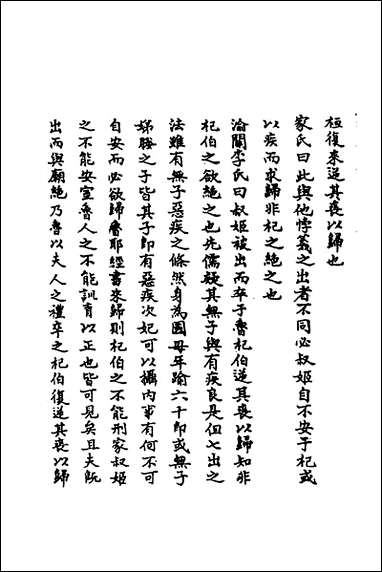 桓復来逆其喪以歸也
家氏曰此與他悖義之出者不同必叔姬自不安于杞或
以疾而求歸非杞之絶之也
渝關李氏曰叔姬被出而卒于魯杞伯逆其喪以歸知非
杞伯之欲絶之也先儒疑其無子與有疾良是但七出之
法雖有無子惡疾之條然身為國母年踰六十即或無子
娣媵之子皆其子即有惡疾次妃可以攝内事有何不可
自安而必欲歸魯耶經書來歸則杞伯之不能刑家叔姬
之不能安室魯人之不能訓育以正也皆可見矣且夫既
出而與廟絶乃魯以夫人之禮卒之杞伯復逆其喪以歸